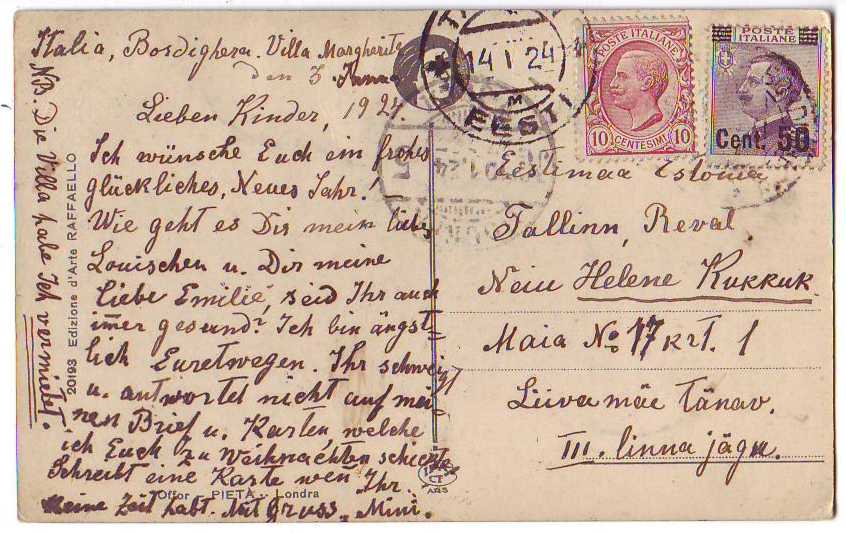 Italia, Bosdighera. Villa Margherita
den 3. Janna
Lieben Kinder, 1924.
Ich wünsche Euch ein frohes
glückliches, Neues Jahr!
Wie geht es Dir mein liebe
Louischen u. Dir meine
liebe Emilie, seid Ihr auch
immer gesund? Ich bin ängst
lich Euretwegen. Ihr schweigt
u. antwortet nicht auf mei
nen Brief u. Karten, welche
ich Euch zu Weihnachten schickte
Schreibt eine Karte wen Ihr
keine Zeit habt. Mit Gruss „Mini.
NB. Die Villa habe Ich vermietet.
20193 Edizione d'Arte RAFFAELLO
Offor - PIETÀ - Londra
ARS
14 I 24
M
EESTI
POSTE ITALIANE
10 CENTESIMI 10
POSTE
ITALIANE
Cent. 50
Eestimaa Estonia
Tallinn, Reval
Neiu Helene Kukkuk.
Maia No 17 krt. 1
Liiva mäe tänav.
III. linna jägu.